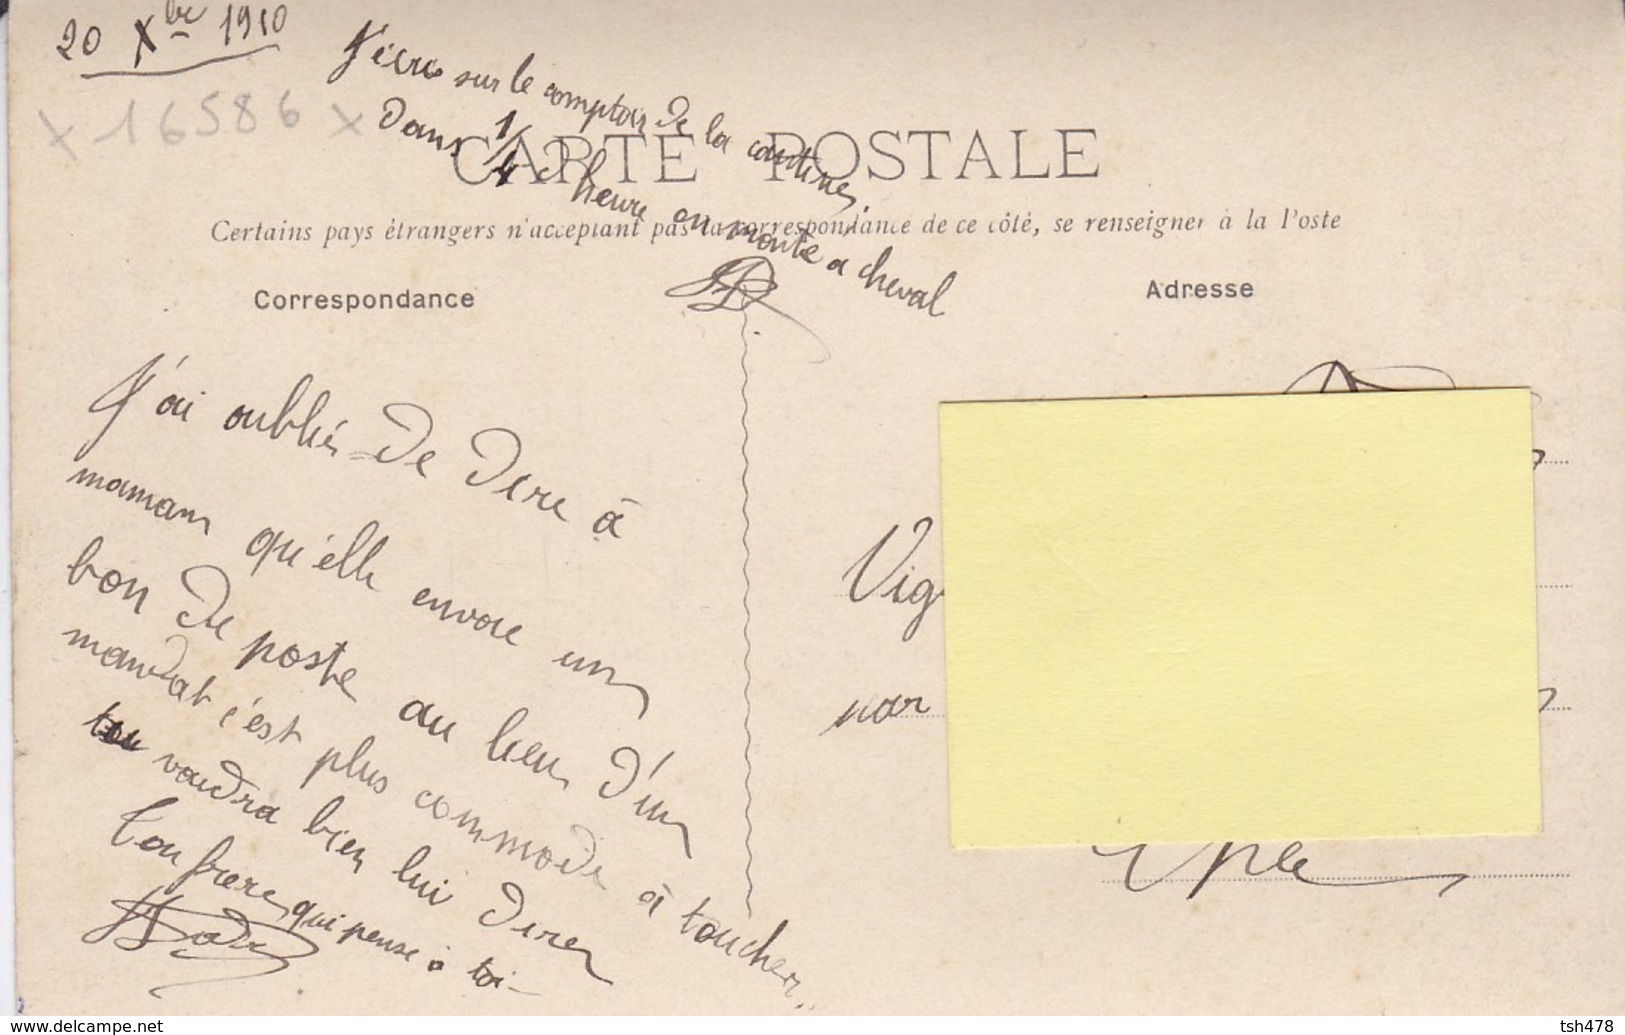 20 Xbre 1910
x 16586 x
J'écris sur le comptoir de la cantine.
Dans 1/4 d'heure on monte à cheval
CARTE POSTALE
Certains pays étrangers n'acceptant pas la correspondance de ce côté, se renseigner à la Poste
Correspondance
Adresse
J'ai oublié de dire à
maman qu'elle envoie un
bon de poste au lieu d'un
mandat c'est plus commode à toucher..
tu voudra bien lui dire
Ton frère qui pense à toi-
Vig
par
www.delcampe.net
tsh478